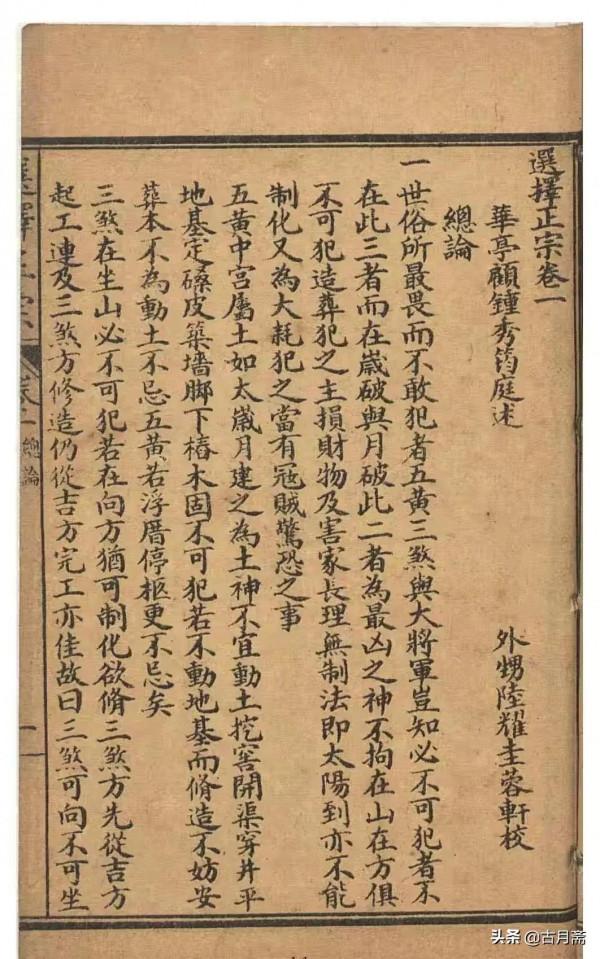 選擇正宗卷一
華亭顧鍾秀筠庭述
外甥陸耀圭蓉軒校
總論
一世俗所最畏而不敢犯者五黃三煞與大將軍豈知必不可犯者不
在此三者而在歲破與月破此二者為最凶之神不拘在山在方俱
不可犯造葬犯之主損財物及害家長理無制法即太陽到亦不能
制化又為大耗犯之當有寇賊驚恐之事
五黃中宮屬土如太歲月建之為土神不宜動土挖窖開渠穿井平
地基定磉皮築墻脚下樁木固不可犯若不動地基而脩造不妨安
葬本不為動土不忌五黃若浮厝停柩更不忌矣
三煞在坐山必不可犯若在向方猶可制化欲脩三煞方先從吉方
起工連及三煞方修造仍從吉方完工亦佳故曰三煞可向不可坐
選擇正宗
卷一
總論
一
头条 @古月斋